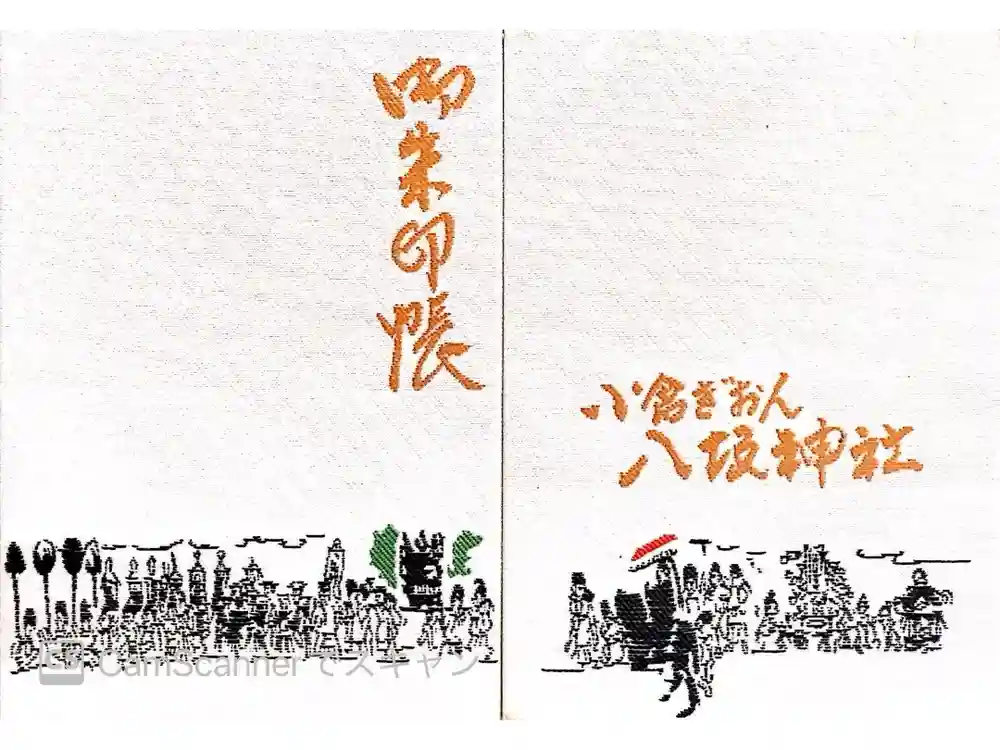 御朱印帳
小倉ぎおん
八坂神社
CamScanner でスキャン